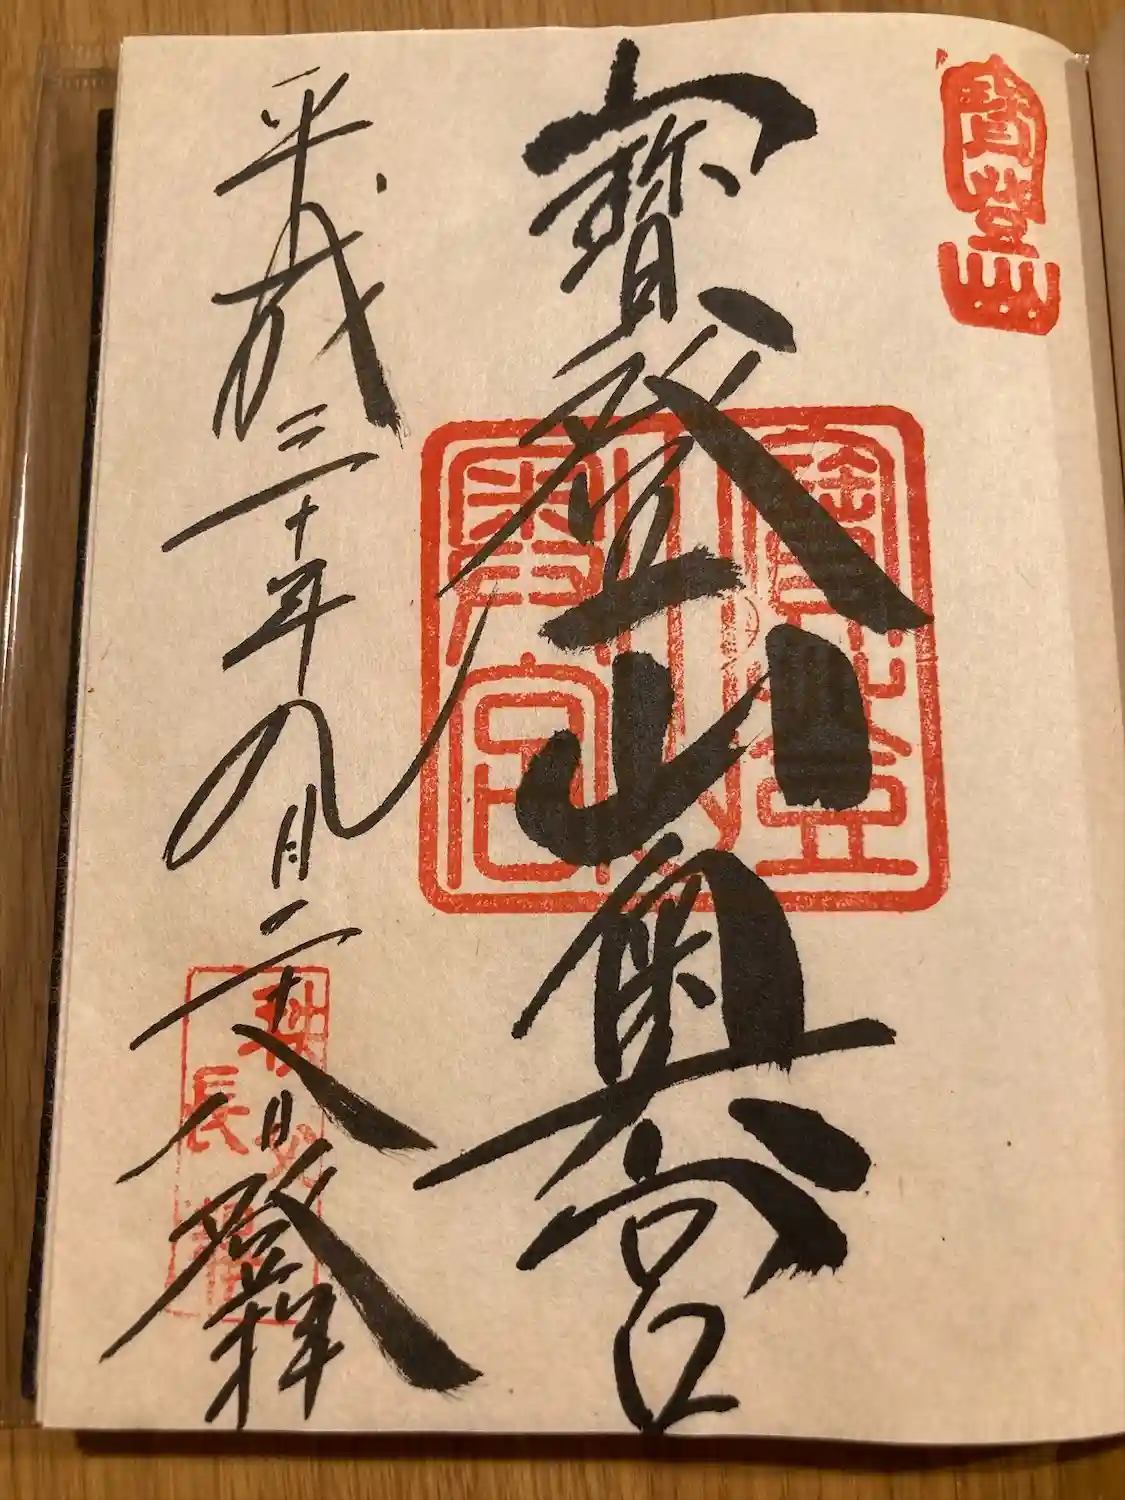 寶登山
寶登山奥宮
寶登山奥宮
平成三十年九月二十八日登拝
秩父
長瀞